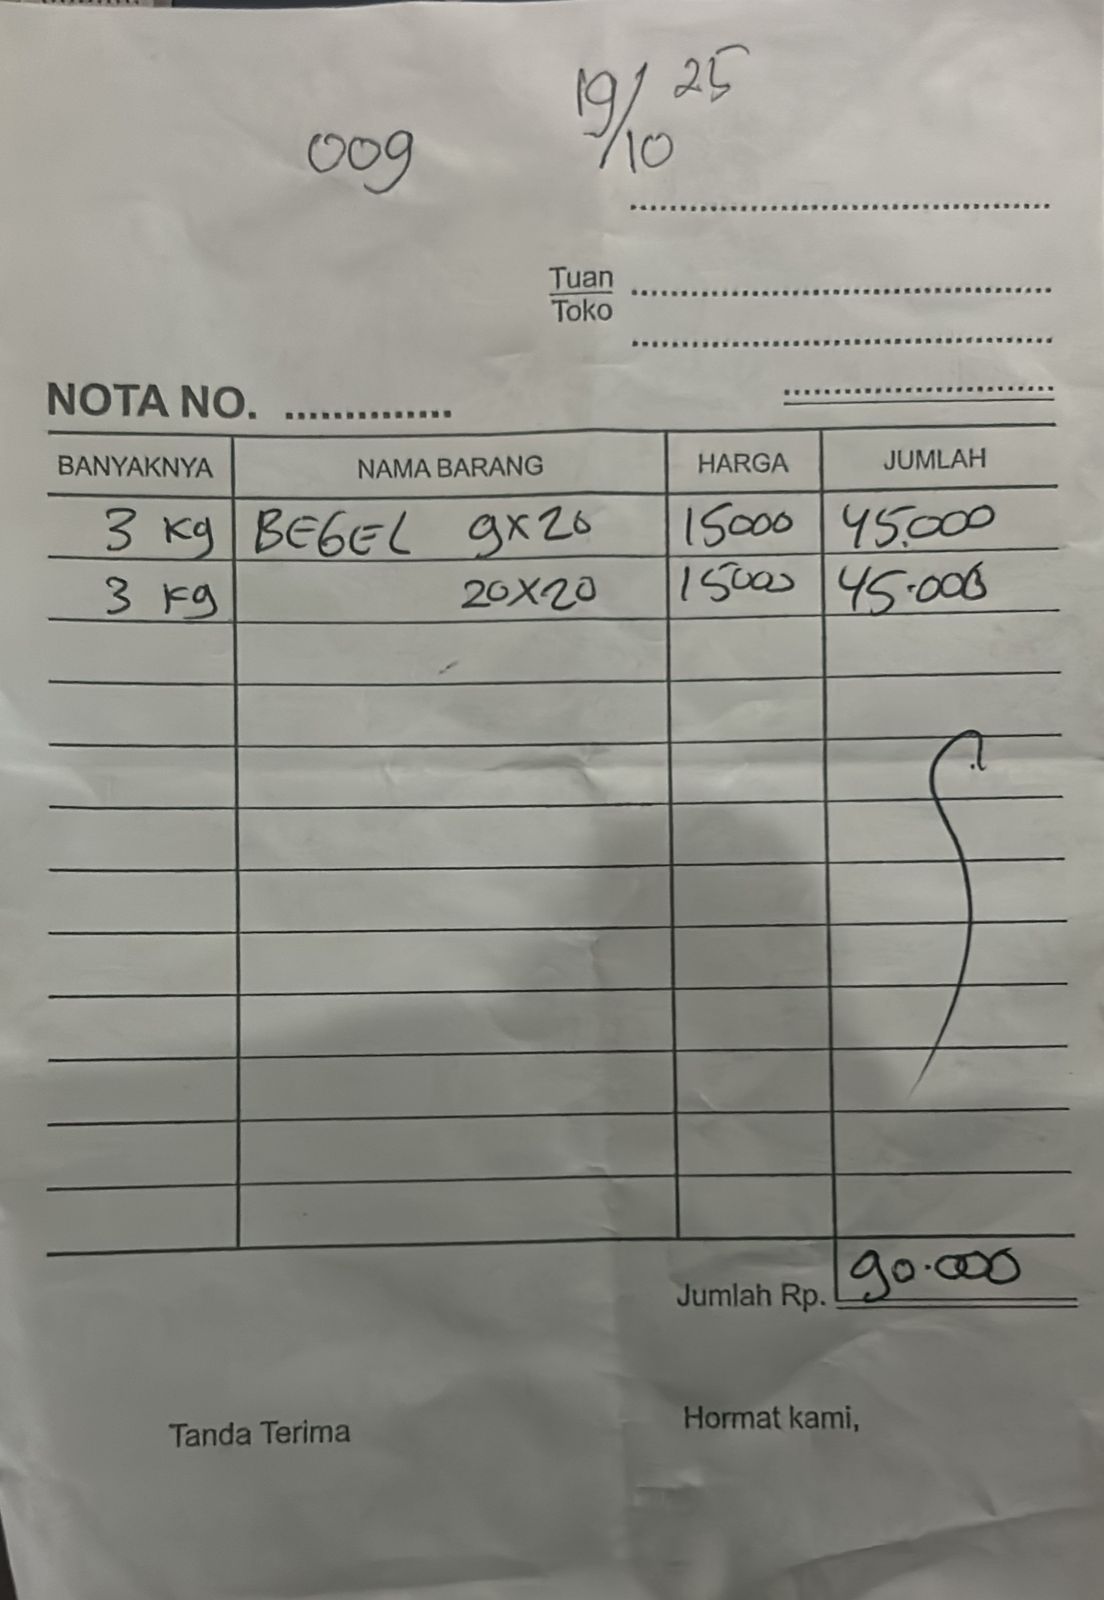 19/10 25
009
Tuan
Toko
NOTA NO. ..............
BANYAKNYA NAMA BARANG HARGA JUMLAH
3 kg BEGEL 9x20 15000 45.000
3 kg 20x20 15000 45.000
Jumlah Rp. 90.000
Tanda Terima Hormat kami,